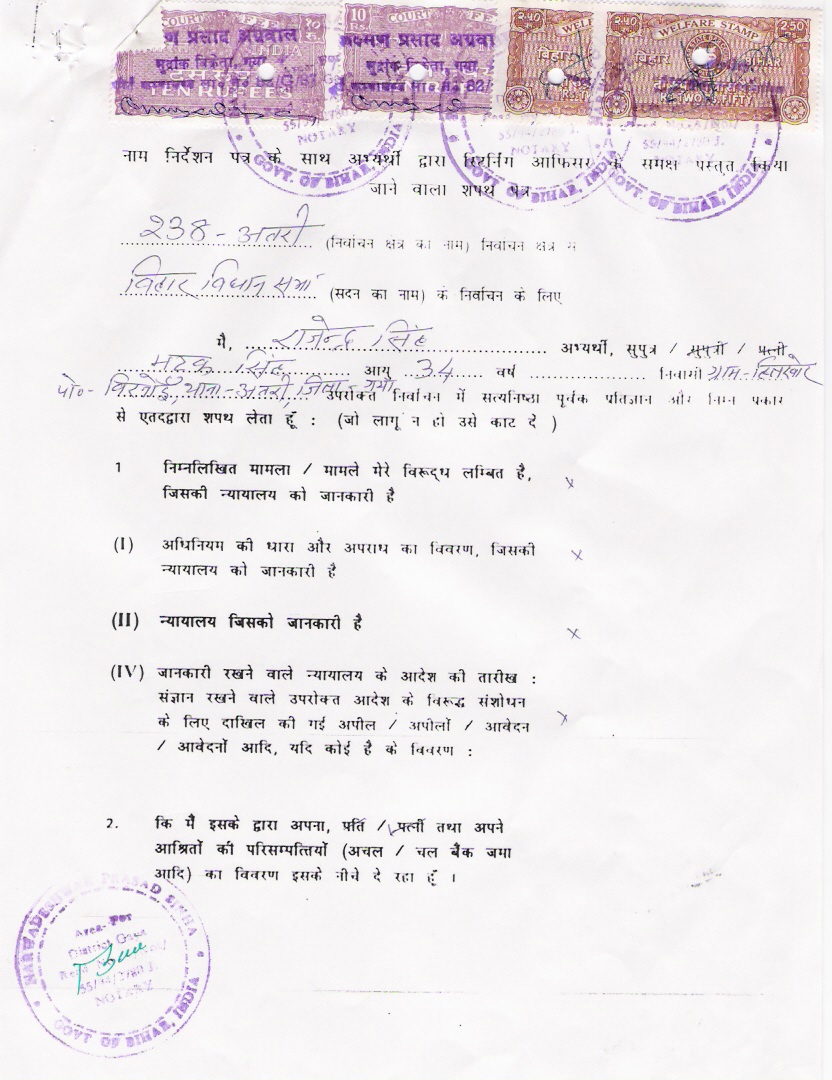 COURT FEE
COURT FEE
WELFARE STAMP
१० Rs.
10 Rs.
२.५०
२.५० 2.50
प्रसाद अग्रवाल
लक्ष्मण प्रसाद अग्रवा
INDIA
मुद्रांक विक्रेता, गया
मुद्रांक विक्रेता, गया
बिहार
बिहार BIHAR
TEN RUPEES
NOTARY
GOVT. OF BIHAR, INDIA
NOTARY
NOTARY
GOVT. OF BIHAR, INDIA
नाम निर्देशन पत्र के साथ अभ्यर्थी द्वारा रिटर्निंग आफिसर के समक्ष पस्तुत किया
जाने वाला शपथ पत्र
238-अतरी (निर्वाचन क्षेत्र का नाम) निर्वाचन क्षेत्र में
बिहार विधान सभा (सदन का नाम) के निर्वाचन के लिए
मै, राजेन्द्र सिंह अभ्यर्थी, सुपुत्र / सुपुत्री / पत्नी
सिंह आयु 34 वर्ष निवासी ग्राम-
पो०- थाना-अतरी, जिला-गया उपरोक्त निर्वाचन में सत्यनिष्ठा पूर्वक प्रतिज्ञान और निम्न प्रकार
से एतदद्वारा शपथ लेता हूँ : (जो लागू न हो उसे काट दे )
1 निम्नलिखित मामला / मामले मेरे विरूद्ध लम्बित है,
जिसकी न्यायालय को जानकारी है x
(I) अधिनियम की धारा और अपराध का विवरण, जिसकी
न्यायालय को जानकारी है x
(II) न्यायालय जिसको जानकारी है x
(IV) जानकारी रखने वाले न्यायालय के आदेश की तारीख :
संज्ञान रखने वाले उपरोक्त आदेश के विरूद्ध संशोधन
के लिए दाखिल की गई अपील / अपीलों / आवेदन x
/ आवेदनों आदि, यदि कोई है के विवरण :
2. कि मै इसके द्वारा अपना, प्रति / पत्नी तथा अपने
आश्रितों की परिसम्पत्तियों (अचल / चल बैंक जमा
आदि) का विवरण इसके नीचे दे रहा हूँ ।
NARWADESHWAR PRASAD SINHA
Area-For
District Gaya
NOTARY
GOVT OF BIHAR, INDIA